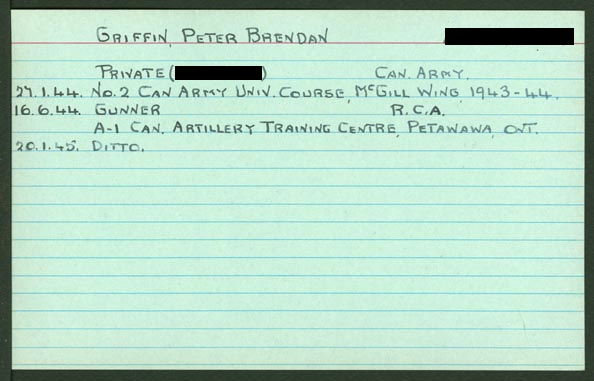 GRIFFIN, PETER BRENDAN
PRIVATE ( ) CAN. ARMY.
27.1.44. NO.2 CAN ARMY UNIV. COURSE, McGILL WING, 1943-44.
16.6.44. GUNNER R.C.A.
A-1 CAN. ARTILLERY TRAINING CENTRE, PETAWAWA, ONT.
20.1.45. DITTO.